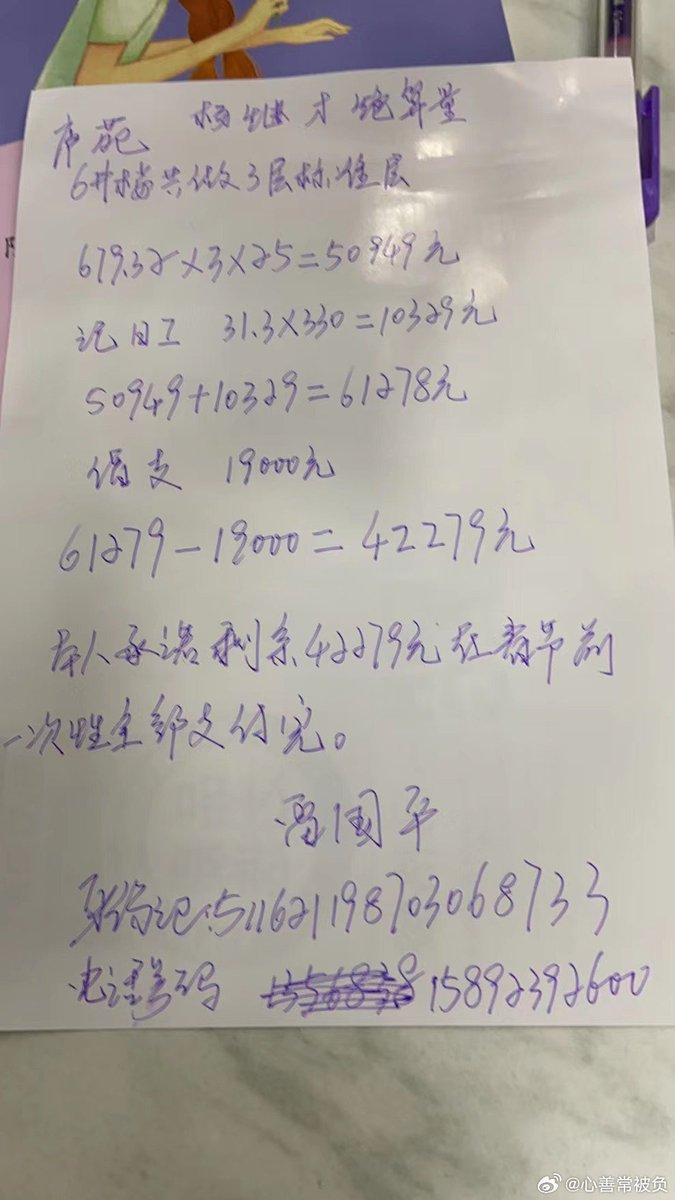 6#楼共做3层标准层
679.32×3×25=50949元
记日工 31.3×330=10329元
50949+10329=61278元
借支 19000元
61279-19000=42279元
本人承诺剩余42279元在春节前
一次性全部支付完。
国平
身份证:511621198703068733
电话号码 15892392600
@心善常被负